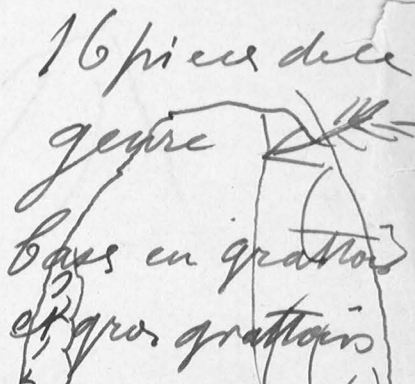 16 pieces de ce
genre
base en grattoirs
et gros grattoirs